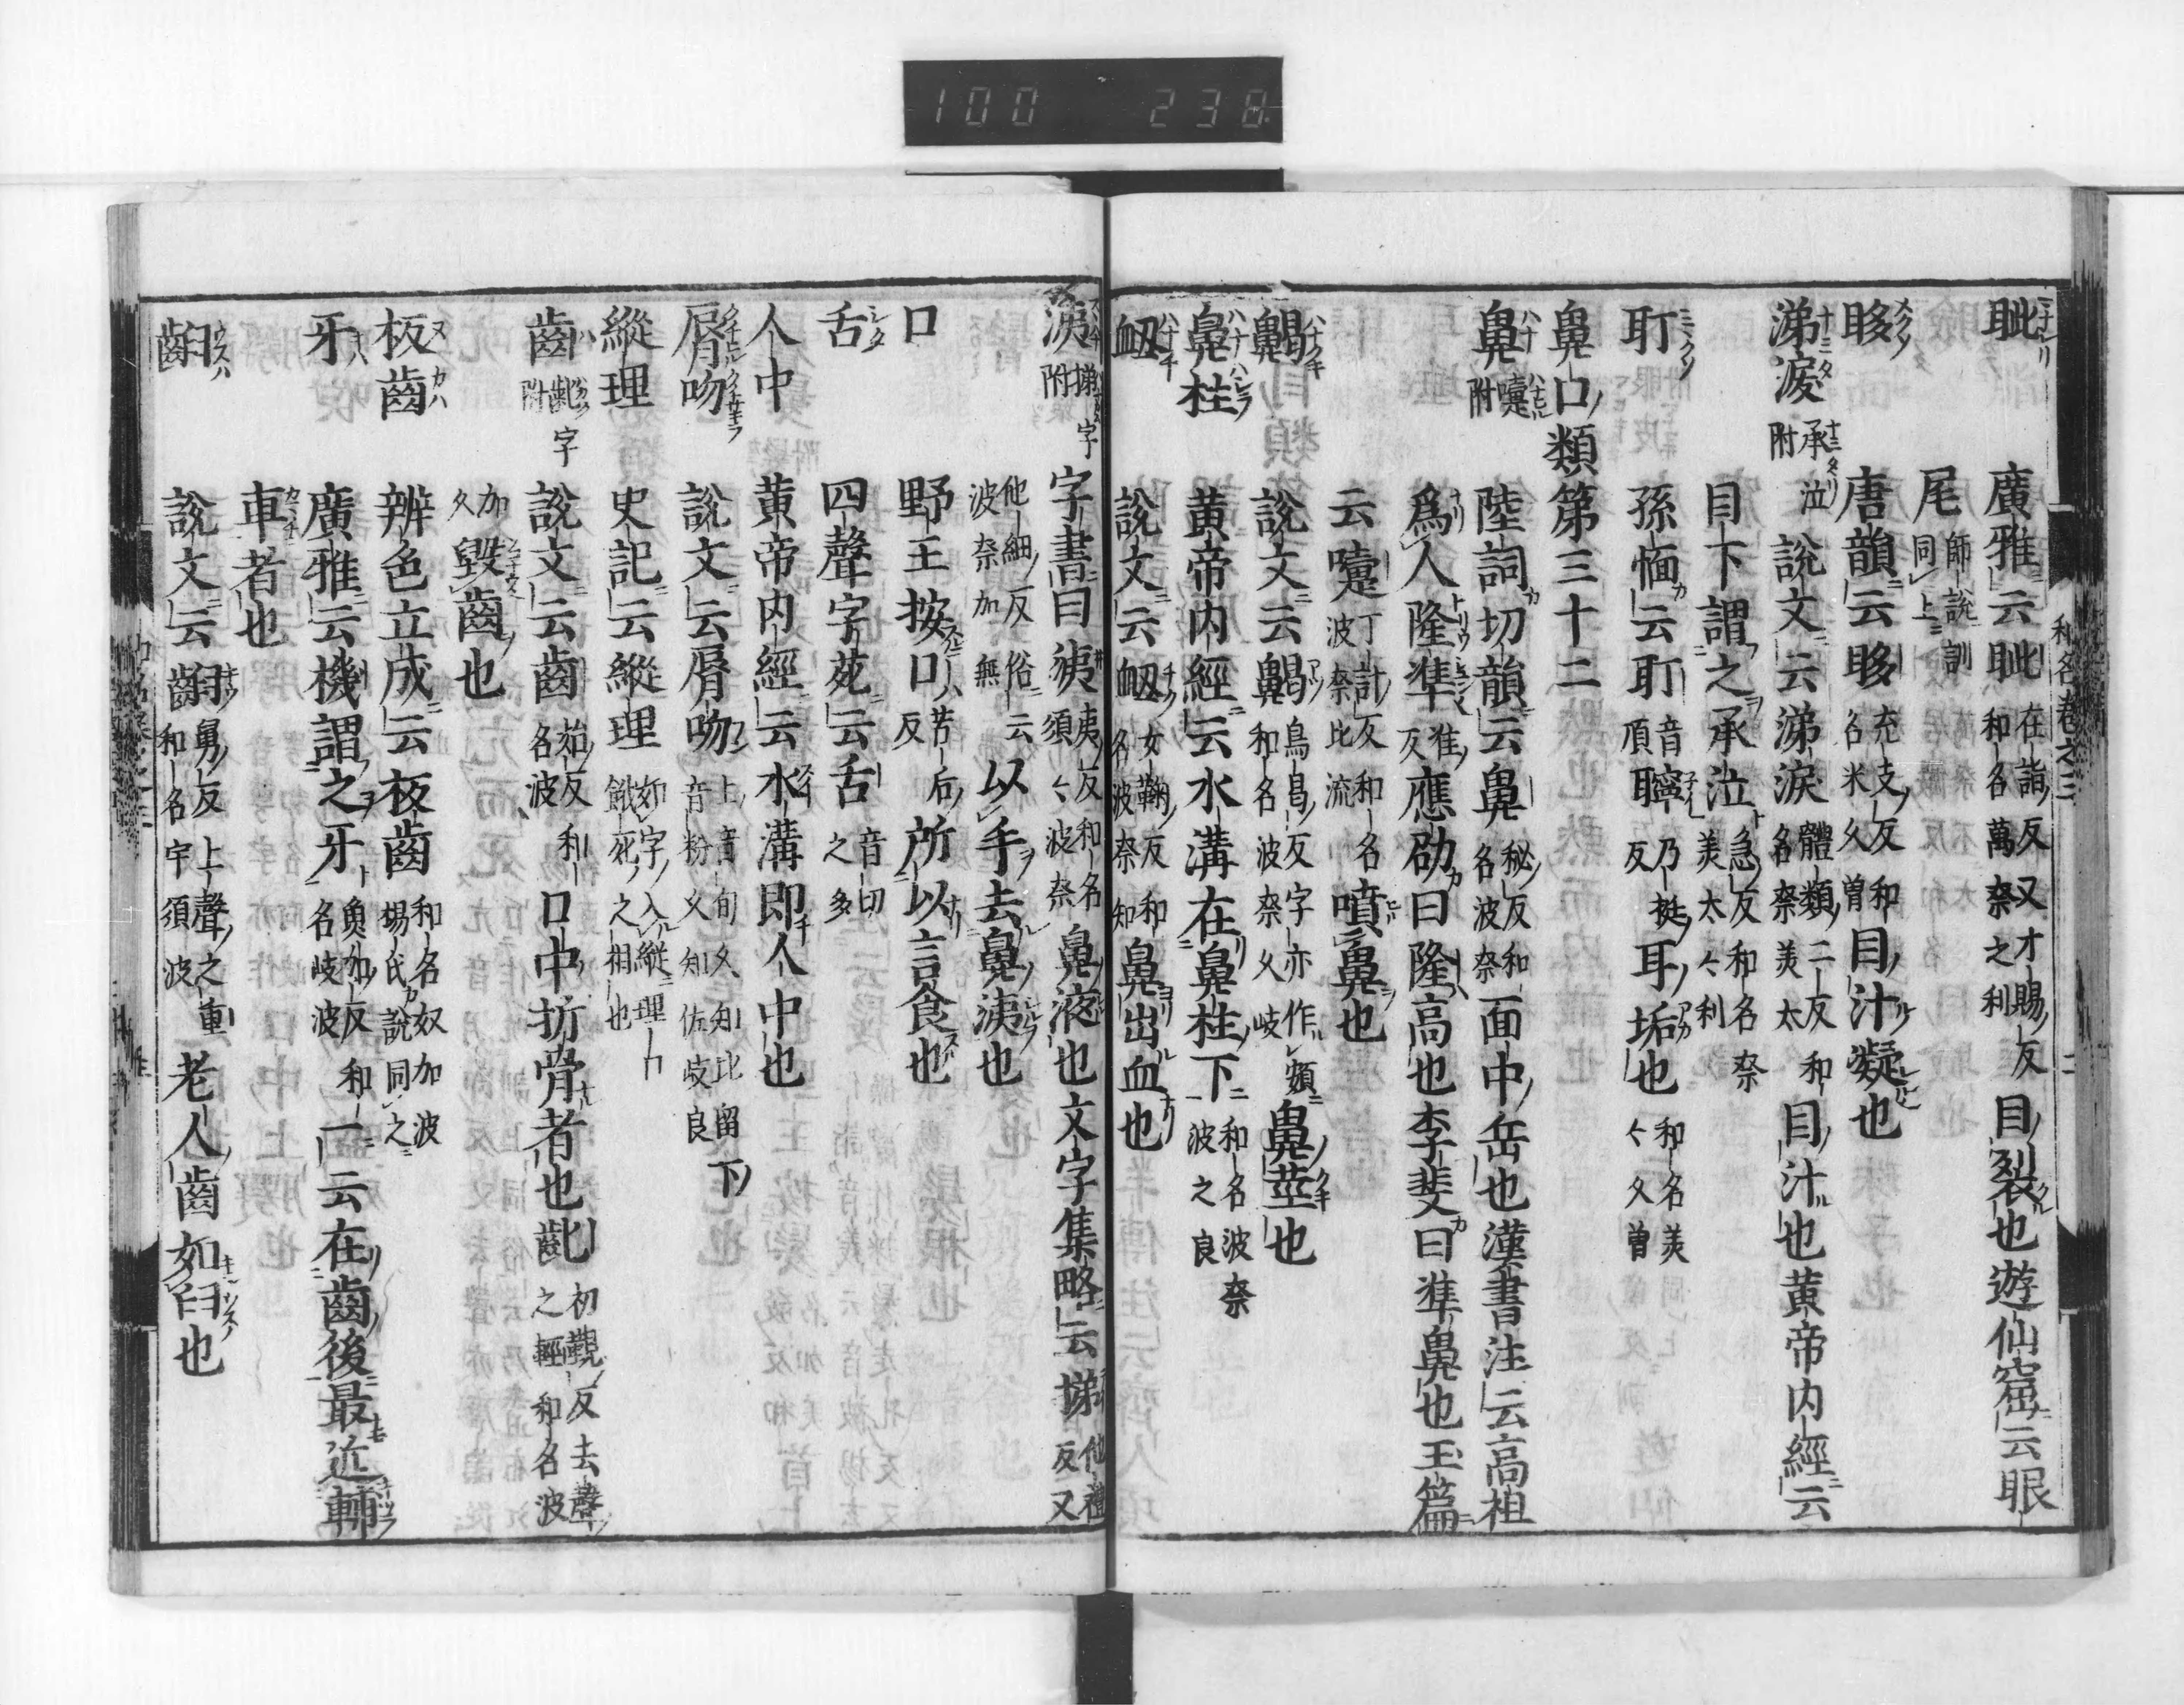 眦 廣雅云眦 在詣反又才賜反 和名萬奈之利 目裂也遊仙窟云眼
尾 師説訓同上
眵 唐韻云眵 充支反和名米久曽 目汁凝也
涕淚 承泣附 説文云涕淚 體類二反和名奈美太 目汁也黄帝内經云
目下謂之承泣 急反和名奈美太々利
耵 孫愐云耵 音頂 聹 乃挺反 耳垢也 和名美々久曽
鼻口類第三十二
鼻 嚔附 陸詞切韻云鼻 秘反和名波奈 面中岳也漢書注云高祖
爲人隆準 准反 應劭曰隆高也李斐曰準鼻也玉篇
云嚔 丁計反和名波奈比流 噴鼻也
齃 説文云齃 烏曷反字亦作頞 和名波奈久岐 鼻莖也
鼻柱 黄帝内經云水溝在鼻柱下 和名波奈波之良
衂 説文云衂 女鞠反和名波奈知 鼻出血也
洟 字附 字書曰洟 夷反和名須々波奈 鼻液也文字集略云 他禮反又
他細反俗云波奈加無 以手去鼻洟也
口 野王按口 苦后反 所以言食也
舌 四聲字苑云舌 音切之多
人中 黄帝内經云水溝即人中也
脣吻 説文云脣吻 上音旬久知比留下音粉久知佐岐良
縱理 史記云縱理 餓死之相也
齒 齔字附 説文云齒 和名波 口中㫁骨者也齔 初覲反去聲之輕和名波
加久 毀齒也
板齒 辨色立成云板齒 和名奴加波楊氏説同之
牙 廣雅云機謂之牙 魚加反和名岐波 一云在齒後最近輔
車者也
齨 説文云齨 舅反上聲之重和名宇須波 老人齒如臼也
和名巻之三 二
100 238